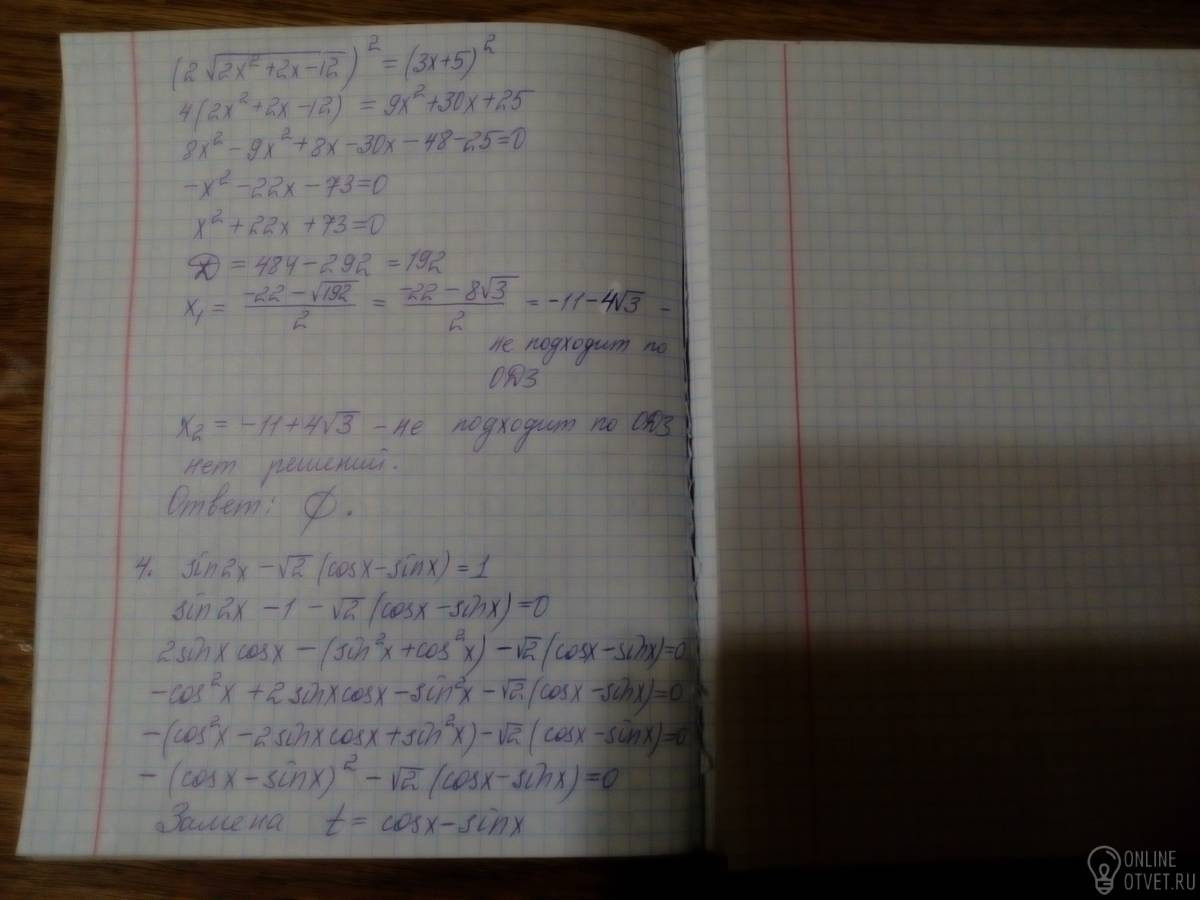 (2√(2x²+2x-12))² = (3x+5)²
4(2x²+2x-12) = 9x²+30x+25
8x²-9x²+8x-30x-48-25=0
-x²-22x-73=0
x²+22x+73=0
D = 484-292 = 192
x₁ = (-22-√192)/2 = (-22-8√3)/2 = -11-4√3 -
не подходит по
ОДЗ
x₂ = -11+4√3 - не подходит по ОДЗ
нет решений.
Ответ: ∅.
4. sin2x-√2(cosx-sinx)=1
sin2x-1-√2(cosx-sinx)=0
2sinxcosx-(sin²x+cos²x)-√2(cosx-sinx)=0
-cos²x+2sinxcosx-sin²x-√2(cosx-sinx)=0
-(cos²x-2sinxcosx+sin²x)-√2(cosx-sinx)=0
-(cosx-sinx)²-√2(cosx-sinx)=0
Замена t = cosx-sinx
ONLINE
OTVET.RU